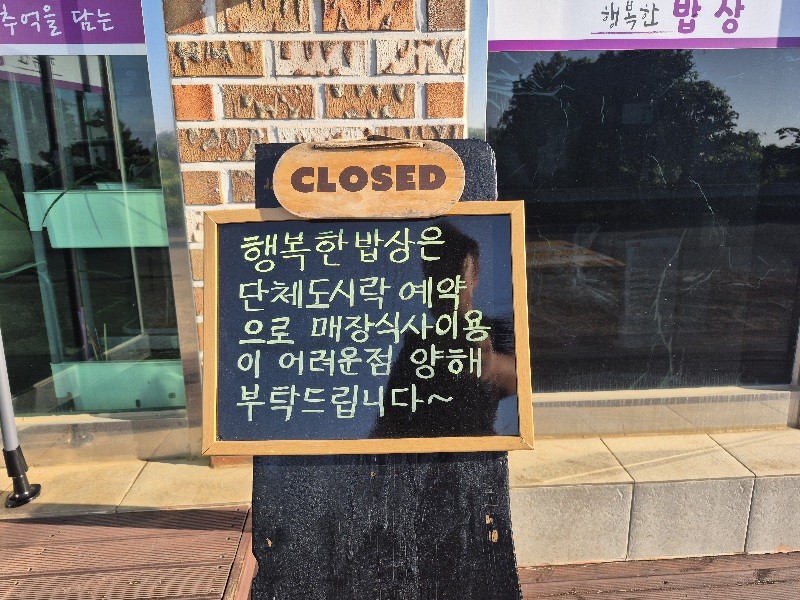 추억을 담는
행복한 밥상
CLOSED
행복한밥상은
단체도시락 예약
으로 매장식사이용
이 어려운점 양해
부탁드립니다~